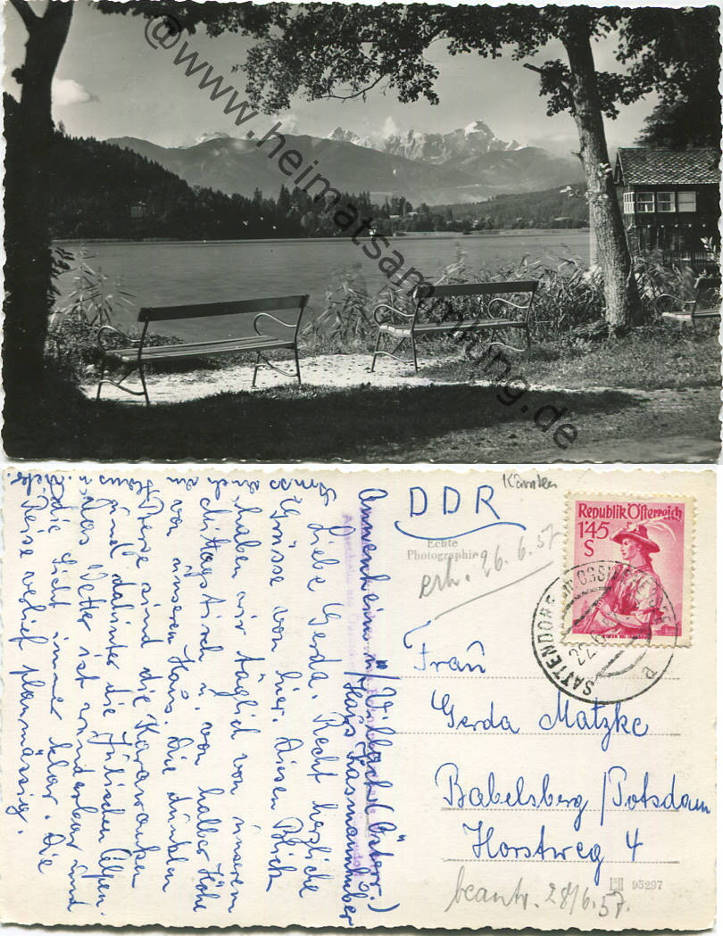 @www.heimatsammlung.de
Kärnten
DDR
Echte
Photographie
erh. 26.6.57
Republik Österreich
1'45
S
SATTENDORF am OSSIACHERSEE
22.6
a
Frau
Gerda Matzke
Babelsberg / Potsdam
Horstweg 4
95297
beantw. 28/6.57.
Annenheim ü/Villach (Österr.)
Haus Hasmannhuber
Liebe Gerda. Recht herzliche
Grüsse von hier. Diesen Blick
haben wir täglich von unserem
Mittagstisch u. von halber Höhe
von unserem Haus. Die dunklen
Berge sind die Karawanken
und dahinter die Jülischen Alpen.
Das Wetter ist wunderbar und
die Sicht immer klar. Die
Reise verlief planmässig.